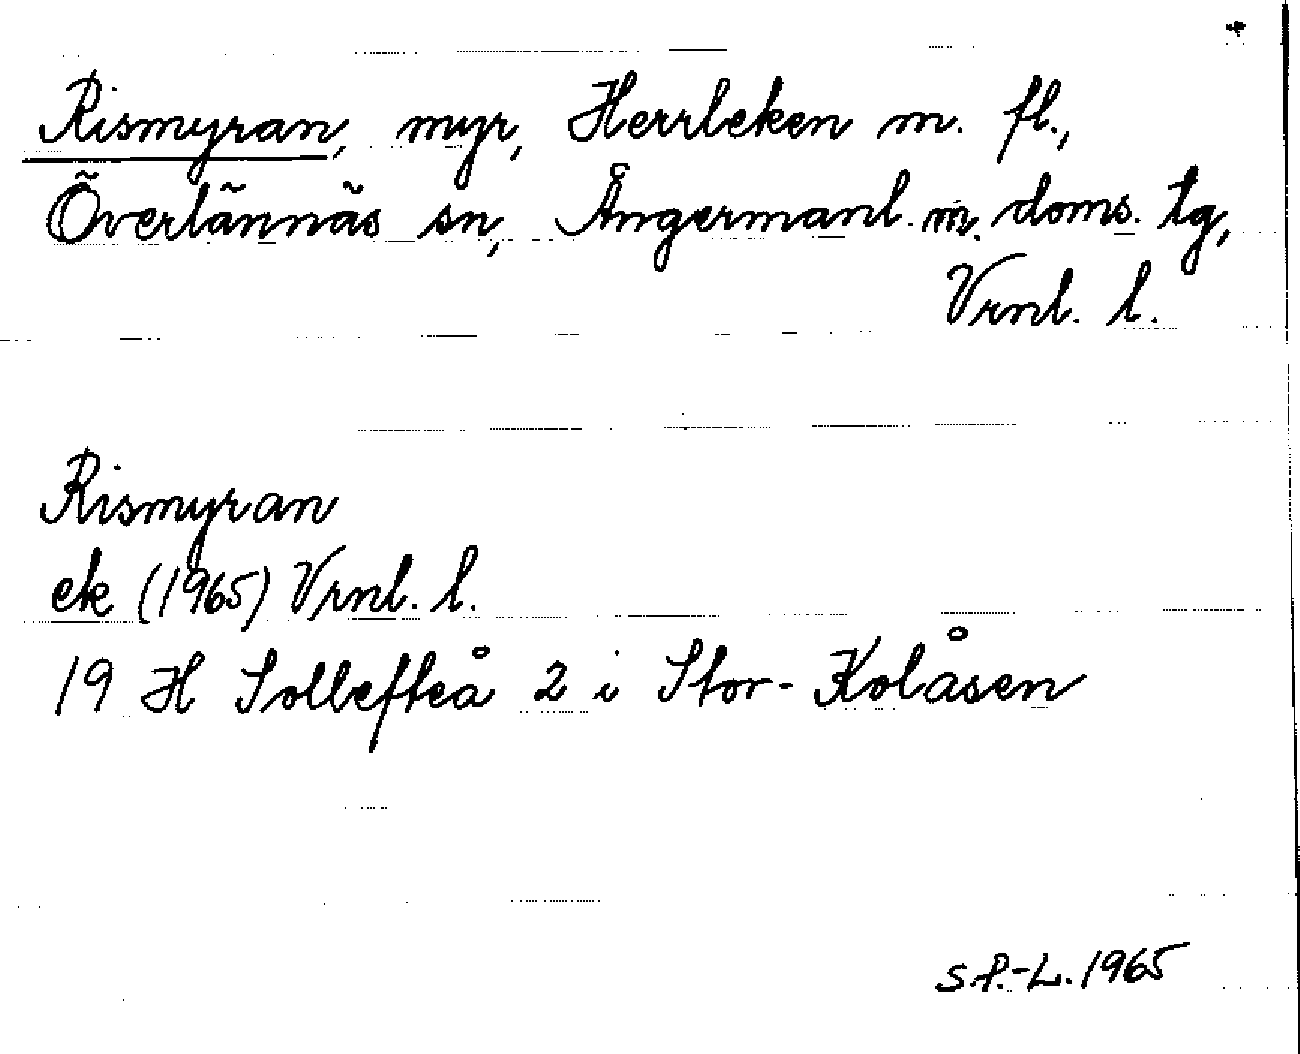 Rismyran, myr, Herrleken m. fl.,
Överlännäs sn, Ångermanl. m. doms. tg,
Vrnl. l.
Rismyran
ek (1965) Vrnl. l.
19 H Sollefteå 2 i Stor-Kolåsen
S.P.-L. 1965